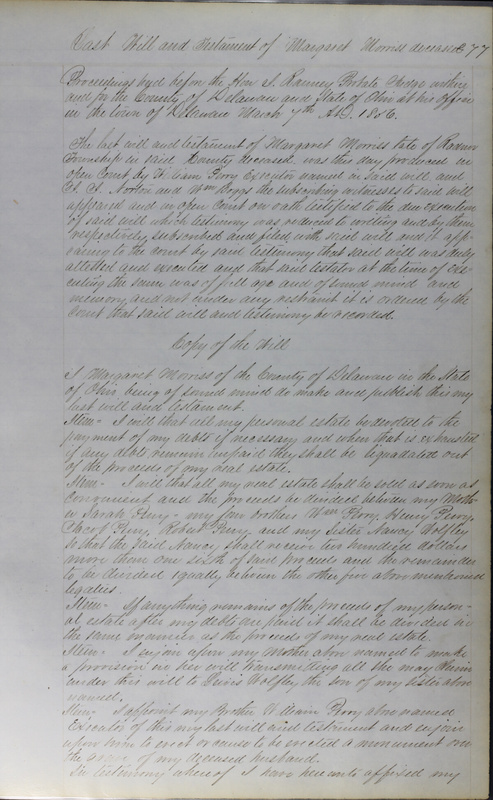 Last Will and Testament of Margaret Morriss deceased 277
Proceedings had before the Hon. S. Ranney Probate Judge within
and for the County of Delaware and State of Ohio at his Office
in the town of Delaware March 7th A.D. 1856.
The last will and testament of Margaret Morriss late of Radnor
Township in said County deceased was this day produced in
open Court by William Perry Executor named in said will and
Norton and Wm Boggs the subscribing witnesses to said will
appeared and in open Court on oath testified to the due execution
of said will which testimony was reduced to writing and by them
respectively subscribed and filed with said will and it app-
earing to the court by said testimony that said will was duly
attested and executed and that said testator at the time of exe-
cuting the same was of full age and of sound mind and
memory and not under any restraint it is ordered by the
Court that said will and testimony be recorded.
Copy of the Will
I Margaret Morriss of the County of Delaware in the State
of Ohio being of sound mind do make and publish this my
last will and testament.
Item - I will that all my personal estate be devoted to the
payment of my debts if necessary and when that is exhausted
if any debts remain unpaid they shall be liquadated out
of the proceeds of my real estate.
Item - I will that all my real estate shall be sold as soon as
convenient and the proceeds be divided between my Moth-
er Sarah Perry - my four brothers Wm Perry, Henry Perry,
Jacob Perry, Robert Perry, and my Sister Nancy Wolfley
so that the said Nancy shall receive two hundred dollars
more than one sixth of said proceeds and the remainder
to be divided equally between the other five above mentioned
legatees.
Item - If anything remains of the proceeds of my person-
al estate after my debts are paid it shall be divided in
the same manner as the proceeds of my real estate.
Item - I enjoin upon my Mother above named to make
a provision in her will transmitting all she may obtain
under this will to Wolfley the son of my sister above
named.
Item - I appoint my Brother William Perry above named
Executor of this my last will and testament and enjoin
upon him to erect or cause to be erected a monument over
the grave of my deceased husband.
In testimony whereof I have hereunto affixed my